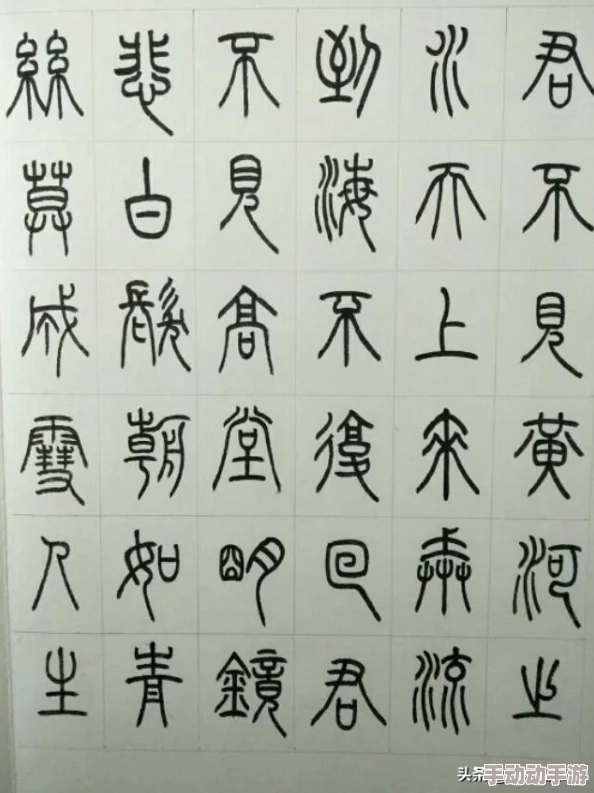 君不見黃河之
水天上來奔流
到海不復回君
不見高堂明鏡
悲白髮朝如青
絲莫成雪人生
头条
手动动手游